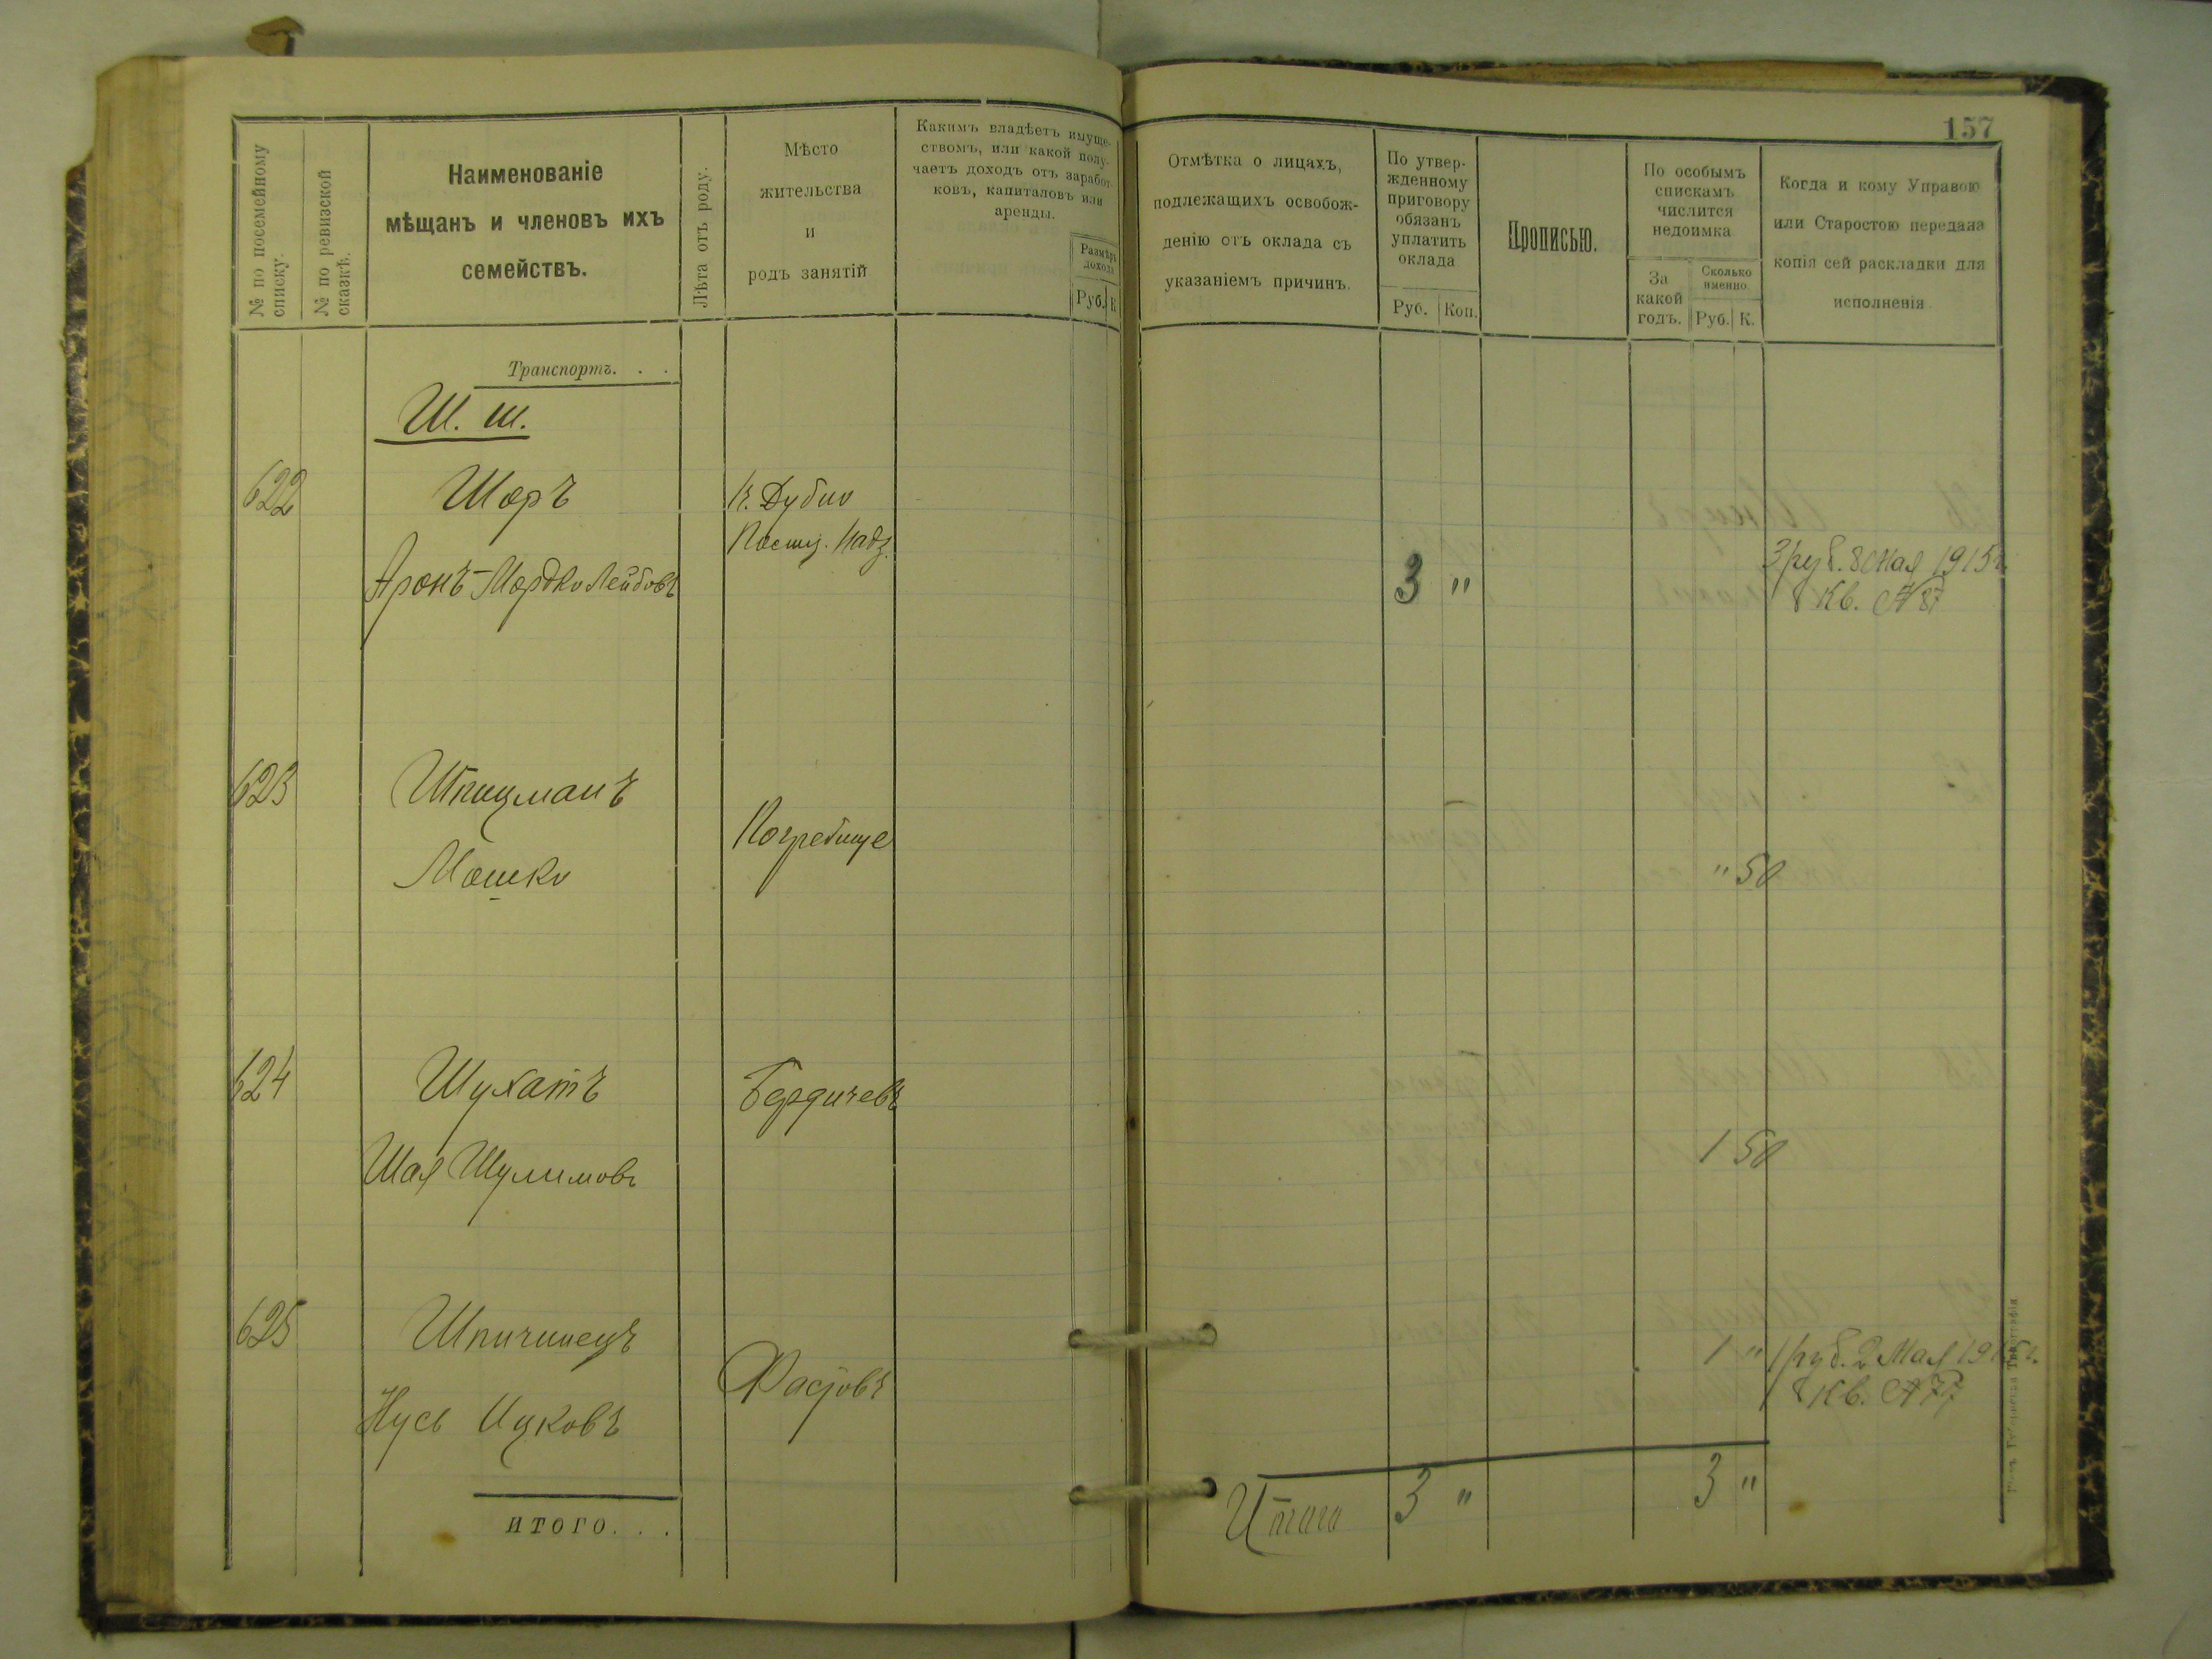 157
№ по посемейному списку.
№ по ревизской сказкѣ.
Наименованіе
мѣщанъ и членовъ ихъ
семействъ.
Лѣта отъ роду.
Мѣсто
жительства
и
родъ занятій
Какимъ владѣетъ имуще-
ствомъ, или какой полу-
чаетъ доходъ отъ заработ-
ковъ, капиталовъ или
аренды.
Размѣръ
дохода
Руб. К
Отмѣтка о лицахъ,
подлежащихъ освобож-
денію отъ оклада съ
указаніемъ причинъ.
По утвер-
жденному
приговору
обязанъ
уплатить
оклада
Руб. Коп.
Прописью.
По особымъ
спискамъ
числится
недоимка
За
какой
годъ.
Сколько
именно.
Руб. К.
Когда и кому Управою
или Старостою передана
копія сей раскладки для
исполненія.
Транспортъ. . .
Ш. ш.
622 Шоръ
Аронъ-Мордко Лейбовъ
К. Дубно
3 "
3 руб. 8 мая 1915 г.
Кв. № 87
623 Шпицманъ
Мошко
Погребище
" 50
624 Шухатъ Бердичевъ
Шая Шулимовъ
1 50
625 Шпичинецъ
Нусь Ицковъ
Фастовъ
1 " 1 руб. 2 Мая 1915 г.
Кв. № 77
ИТОГО. . .
Итого 3 " 3 "